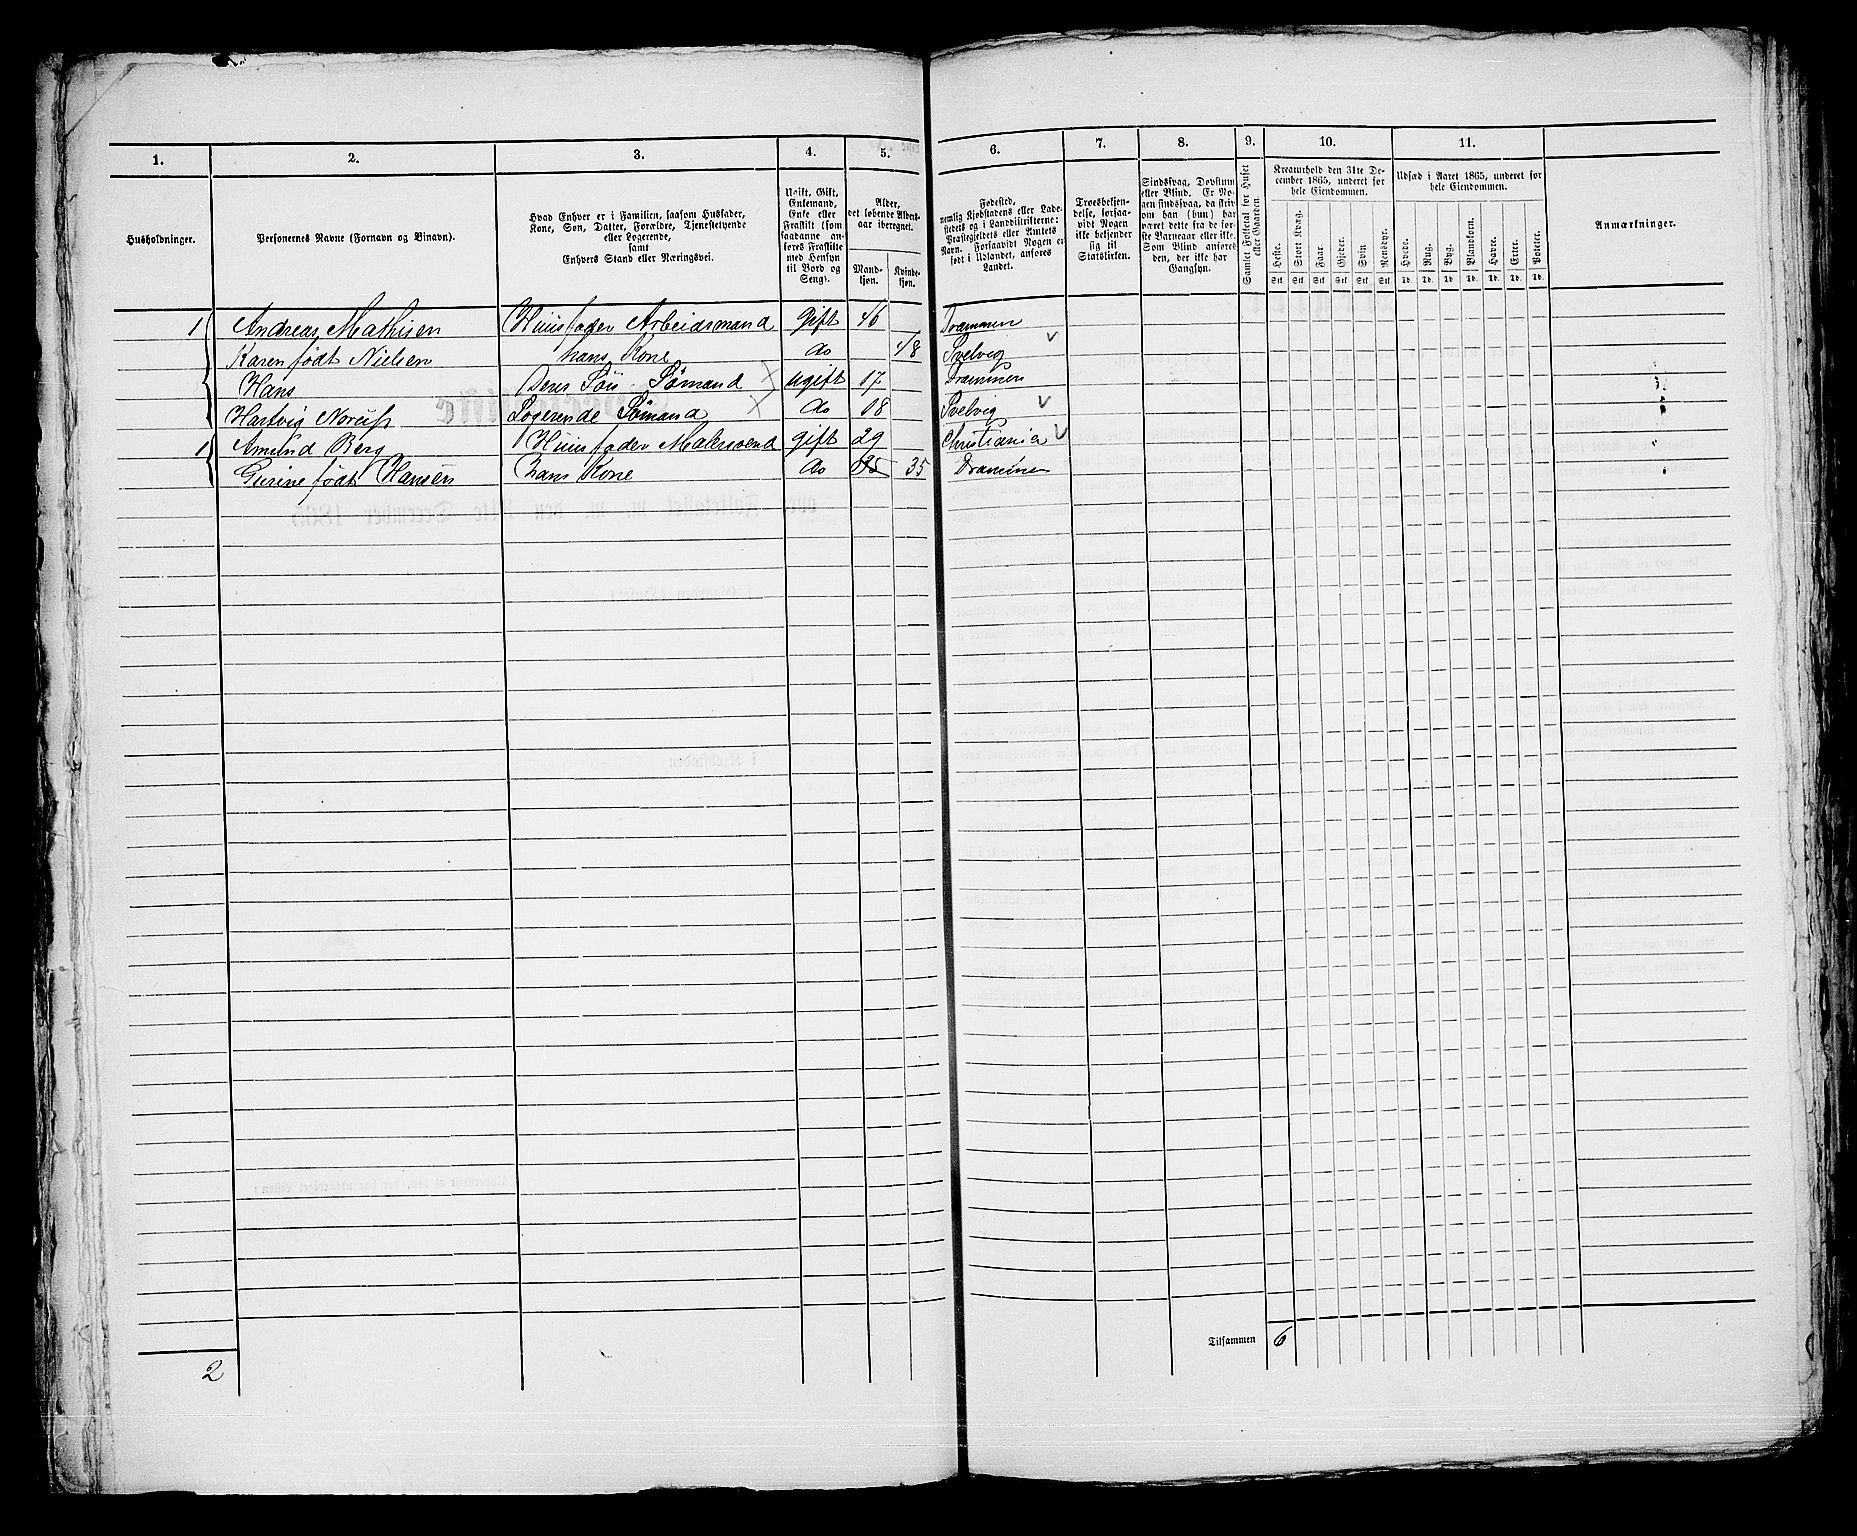 1. 2. 3. 4. 5. 6. 7. 8. 9. 10. 11.
Husholdninger.
Personernes Navne (Fornavn og Binavn).
Hvad Enhver er i Familien, saasom Husfader,
Kone, Søn, Datter, Forældre, Tjenestetyende
eller Logerende,
samt
Enhvers Stand eller Næringsvei.
Ugift, Gift,
Enkemand,
Enke eller
Fraskilt (som
saadanne an-
føres Fraskilte
med Hensyn
til Bord og
Seng).
Alder,
det løbende Alders-
aar iberegnet.
Mand-
kjøn.
Kvinde-
kjøn.
Fødested,
nemlig Kjøbstadens eller Lade-
stedets og i Landdistrikterne:
Præstegjeldets eller Amtets
Navn. Forsaavidt Nogen er
født i Udlandet, anføres
Landet.
Troesbekjen-
delse, forsaa-
vidt Nogen
ikke bekjender
sig til
Statskirken.
Sindssvag, Døvstum
eller Blind. Er No-
gen sindssvag, da skriv
om han (hun) har
været dette fra de før-
ste Barneaar eller ikke.
Som Blind anføres
den, der ikke har
Gangsyn.
Samlet Folketal for Huset
eller Gaarden.
Kreaturhold den 31te De-
cember 1865, underet for
hele Eiendommen.
Heste. Stort Kvæg. Faar. Gjeder. Svin. Rensdyr.
Stk. Stk. Stk. Stk. Stk. Stk.
Udsæd i Aaret 1865, underet for
hele Eiendommen.
Hvede. Rug. Byg. Blandkorn. Havre. Erter. Poteter.
Td. Td. Td. Td. Td. Td. Td.
Anmærkninger.
1 Andreas Mathisen Huusfader Arbeidsmand gift 46 Drammen
Karen født Nielsen hans Kone do 48 Svelvig
Hans Deres Søn Sømand ugift 17 Drammen
Hartvig Logerende Sømand do 18 Svelvig
1 Amund Berg Huusfader Malersvend gift 29 Christiania
Gurine født Hansen hans Kone do 35 35 Drammen
Tilsammen 6
2